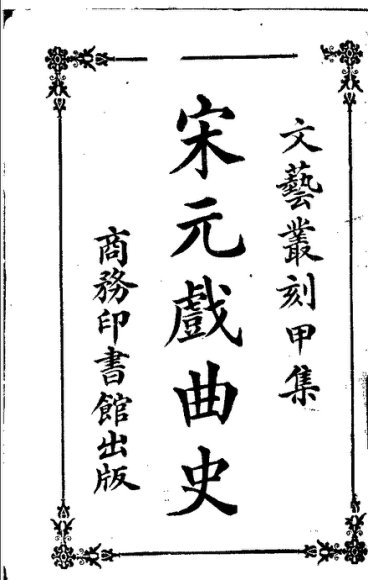 文藝叢刻甲集
宋元戲曲史
商務印書館出版